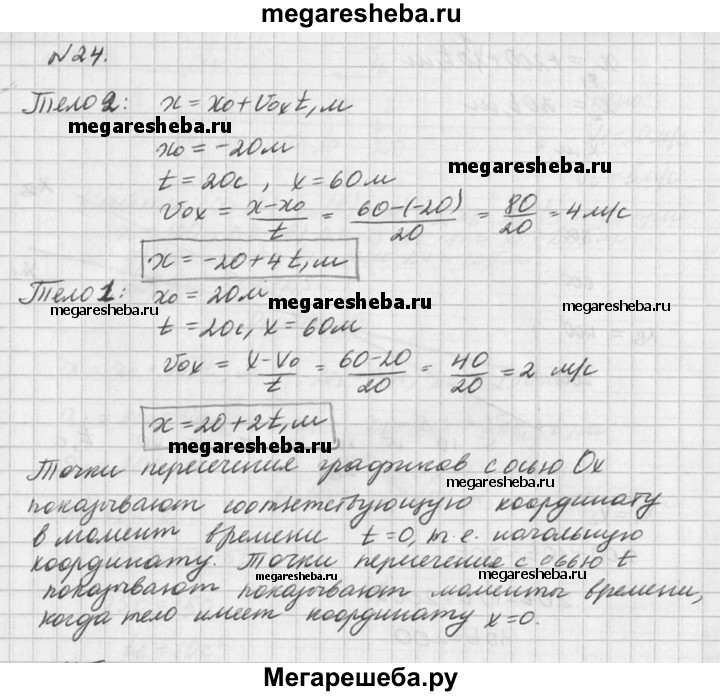 megaresheba.ru
№24.
Тело 2: x = x₀ + V₀ₓt, м
megaresheba.ru
x₀ = -20 м
megaresheba.ru
t = 20 с, x = 60 м
V₀ₓ = (x-x₀)/t = (60-(-20))/20 = 80/20 = 4 м/с
x = -20 + 4t, м
Тело 1: x₀ = 20 м
megaresheba.ru megaresheba.ru megaresheba.ru
t = 20с, x = 60м
V₀ₓ = (x-V₀)/t = (60-20)/20 = 40/20 = 2 м/с
x = 20 + 2t, м
megaresheba.ru
Точки пересечения графиков с осью Ox
megaresheba.ru
показывают соответствующую координату
в момент времени t=0, т.е. начальную
координату. Точки пересечение с осью t
megaresheba.ru megaresheba.ru
показывают показывают моменты времени,
когда тело имеет координату x=0.
Мегарешеба.ру